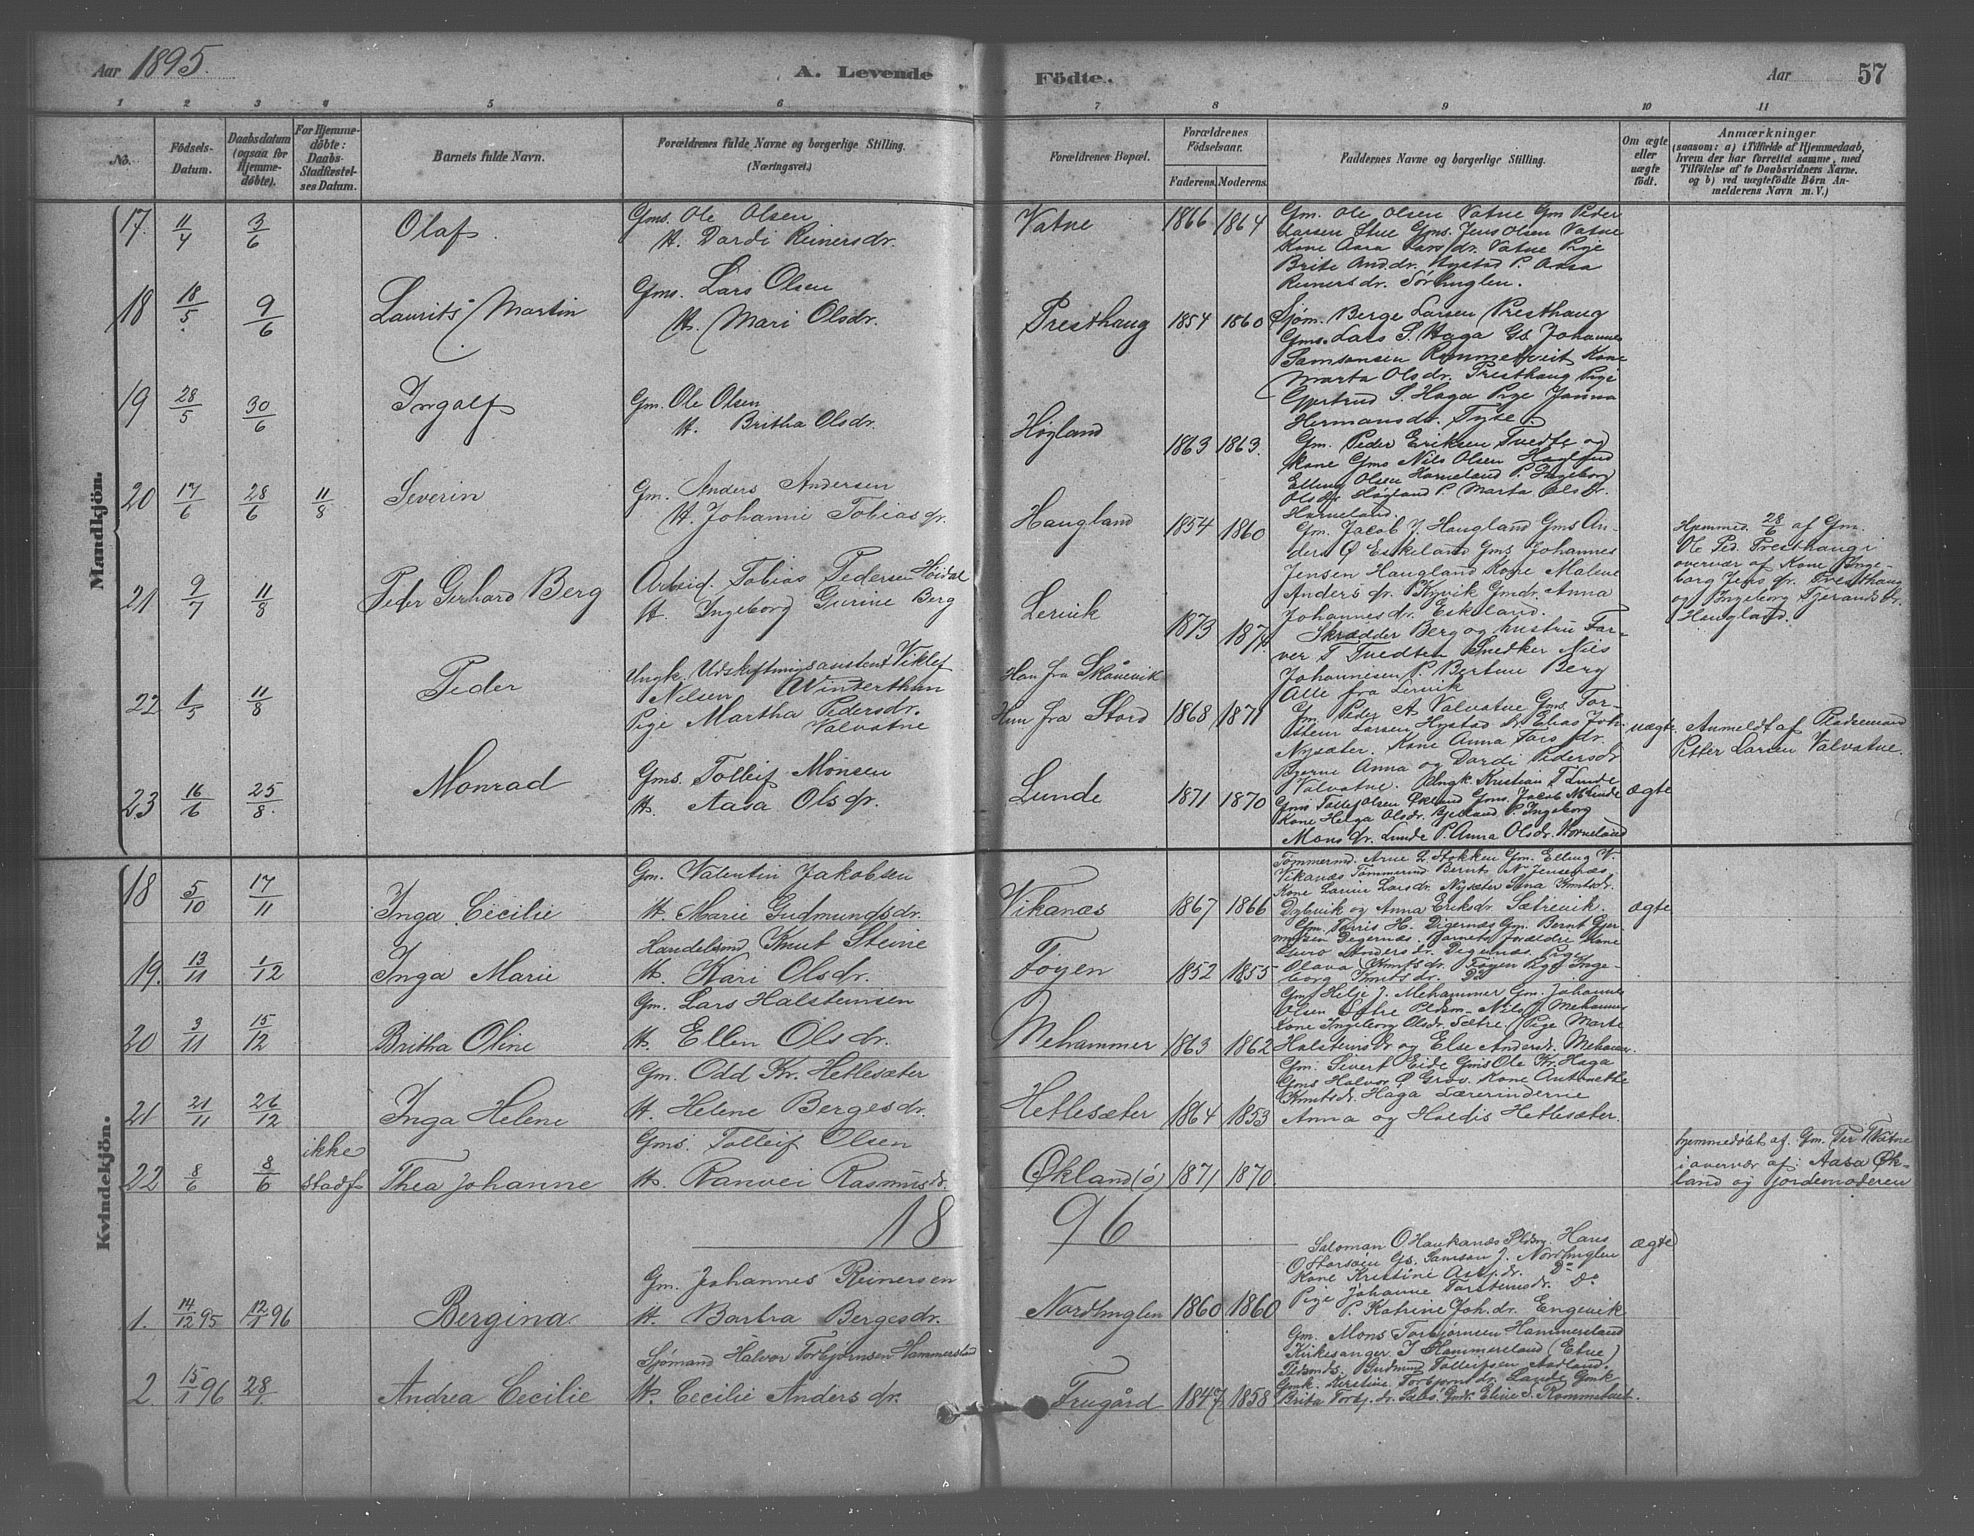 Aar 1895.
A. Levende
Födte.
Aar
57
1 2 3 4 5 6 7 8 9 10 11
No.
Födsels-
Datum.
Daabsdatum
(ogsaa for
Hjemme-
döbte).
For Hjemme-
döbte:
Daabs-
Stadfæstel-
ses Datum.
Barnets fulde Navn.
Forældrenes fulde Navne og borgerlige Stilling.
(Næringsvei.)
Forældrenes Bopæl.
Forældrenes
Födselsaar.
Faderens. Moderens.
Faddernes Navne og borgerlige Stilling.
Om ægte
eller
uægte
födt.
Anmærkninger
(saasom: a) i Tilfælde af Hjemmedaab,
hvem der har forrettet samme, med
Tilföielse af to Daabsvidners Navne.
og b) ved uægtefödte Börn An-
melderens Navn m. V.)
Mandkjön.
17. 11/4 3/6 Olaf.
Gms. Ole Olsen
H. Dardi Reinersdr.
Vatne 1866 1864
Gm. Ole Olsen Vatne Gm Peder
Larsen Stue Gms. Jens Olsen Vatne
Kone Aasa Larsdr. Vatne Pige
Brite And.dr. Nystad P. Aasa
Reinersdr. Sörhuglen.
18 18/5 9/6 Laurits Martin
Gms. Lars Olsen
H. Mari Olsdr.
Presthaug 1854 1860
Sjöm. Berge Larsen Presthaug
Gms. Lars S. Haga Gs. Johannes
Samsonsen Rommetveit Kone
Marta Olsdr. Presthaug Pige
Gjertrud S. Haga Pige Janna
Hermansdr. Tyse.
19 28/5 30/6 Ingolf
Gm. Ole Olsen
H. Britha Olsdr.
Høgland 1863 1863.
Gm. Peder Eriksen Tvedte og
Kone Gms Nils Olsen Høgland
Elling Olsen Horneland P. Ingeborg
Olsdr. Høgland P. Marta Olsdr.
Horneland.
20 17/6 28/6 11/8 Severin
Gm. Anders Andersen
H. Johanne Tobiasdr.
Haugland 1854 1860
Gm. Jacob J. Haugland Gms An-
ders Ø Eskeland Gms Johannes
Jensen Haugland Kone Malene
Andersdr. Kyvik Gmdr. Anna
Johannesdr. Eskeland.
Hjemmed. 28/6 af Gm.
Ole Ped. Presthaug i
overvær af Kone Inge-
borg Jensdr. Presthaug
og Ingeborg Tjerandsdr.
Haugland.
21 9/7 11/8 Peder Gerhard Berg
Arbeid. Tobias Pedersen Høidal
H. Ingeborg Gurine Berg
Lervik 1873 1874.
Skrædder Berg og hustru Far-
ver T Tvedten Snedker Nils
Johannesen P. Bertine Berg
Alle fra Lervik
22 1/5 11/8 Peder
Ungk. Udskiftningsassistent Viklef
Nilsen Winterthun
Pige Martha Pedersdr.
Valvatne
Han fra Skånevik
Hun fra Stord 1868 1871
Gm. Peder A. Valvatne Gms. Tor-
stein Larsen Hystad Dr. Elias Joh.
Nysæter. Kone Anna Larsdr.
Bjerne Anna og Dorde Pedersdr
Valvatne.
uægte
Anmeldt af Pladsemand
Petter Larsen Valvatne.
23 16/6 25/8 Monrad
Gms. Tolleif Monsen
H. Aasa Olsdr.
Lunde 1871 1870
Ungk. Kristian T Lunde
Gms Tollef Olsen Økland Gms. Jacob M Lunde
Kone Helga Olsdr. Bjelland P. Ingeborg
Monsdr. Lunde P. Anna Olsdr. Horneland
ægte
Kvindekjön.
18 5/10 17/11 Inga Cecilie
Gm. Valentin Jakobsen
H. Marie Gudmundsdr.
Vikanæs 1867 1866
Tömmermd. Arne L. Stokken Gm. Elling V.
Vikanæs Tömmermd Bernt N. Jensenæs
Kone Larine Larsdr. Nysæter Sina Knutsdr.
Dybevik og Anna Eriksdr. Sætrevik.
ægte
19. 13/11 1/12 Inga Marie
Handelsmd Knut Steine
H. Kari Olsdr.
Føyen 1852 1855
Gm. Torris H. Digernæs Gm. Bernt Gjer-
mundsen Digernæs. Barnets Forældre Kone
Guro Andersdr. Digernæs Pige
Olava Knutsdr. Føyen Pige Inge-
borg Knutsdr. Do
20 3/11 15/12 Britha Oline
Gm. Lars Halsteinsen
H. Ellen Olsdr.
Mehammer 1863 1862
Gms Helje J. Mehammer Gm. Johannes
Olsen Sætre Pldsm. Nils J. Mehammer
Kone Ingeborg Olsdr. Sætre Pige Marte
Halsteinsdr og Else Andersdr. Mehammer.
21 21/11 26/12 Inga Helene
Gm. Odd Kr. Hetlesæter
H. Helene Bergesdr.
Hetlesæter 1864 1853
Gm. Sivert Eide Gms Ole Kr. Haga
Gms Halvor Ø Grov. Kone Antonette
Knutsdr. Haga Lærerinderne
Anna og Holdis Hetlesæter.
22 8/6 8/6 ikke
stadf. Thea Johanne
Gms. Tolleif Olsen
H. Ranvei Rasmusdr.
Økland (ö) 1871 1870.
hjemmedöbt af. Gm. Per Vatne
i overvær af: Aasa Øk-
land og Jordemoderen
18 96
1. 14/12 95 12/1 96 Bergina.
Gm. Johannes Reinersen
H. Barbra Bergesdr.
Nordhuglen 1860 1860
Salomon O Haukanæs Pldsm. Hans
O Storsöen Gs. Samson J. Nordhuglen
Kone Kristine Asbj.dr. Do Do
Pige Johanne Torsteinsdr.
P. Katrine Joh.dr. Engevik
ægte
2 15/1 96 28/1 Andrea Cecilie
Sjömand Halvor Torbjørnsen Hammersland
H. Cecilie Andersdr.
Frugård 1847 1858
Gm. Mons Torbjørnsen Hammersland
Kirkesanger J Hammersland (Etne)
Pldsmds. Gudmund Tolleifsen Aadland.
Gmk. Kirstine Torbjørnsdr. Lunde Gmk
Brita Torbj.dr. Sæbö. Gmdr. Eline S. Rommetveit.